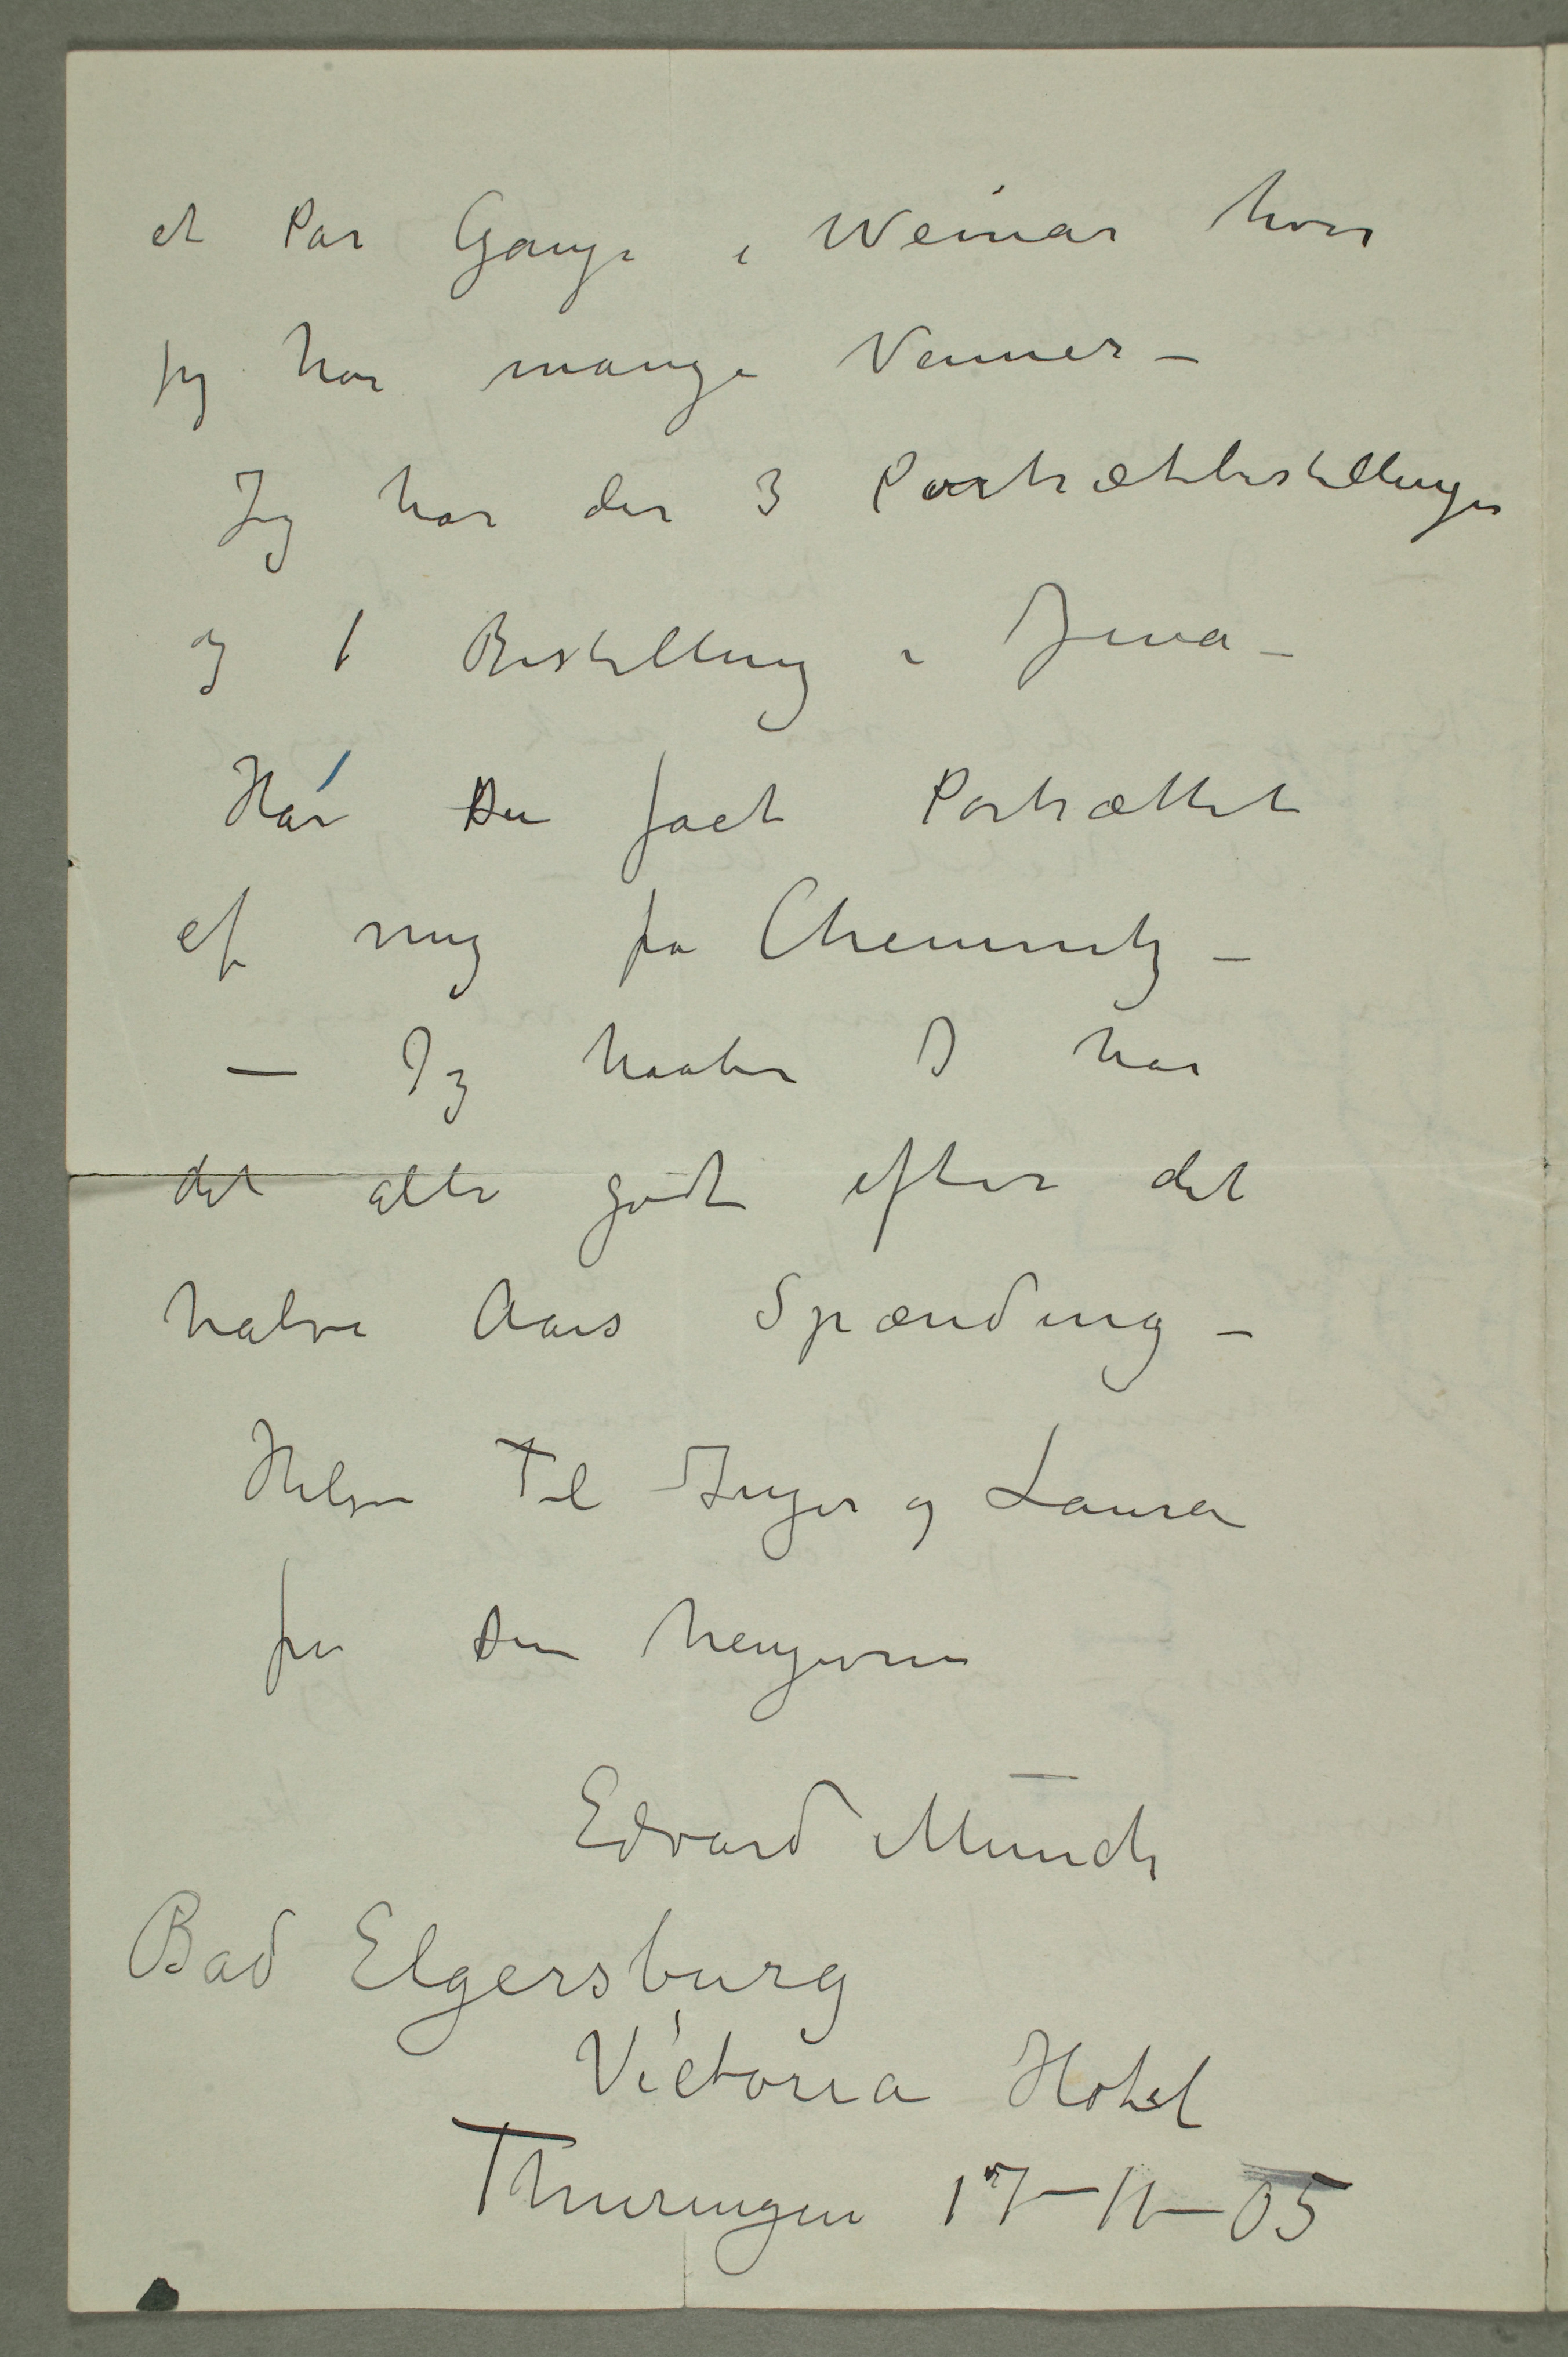 et Par Gange i Weimar hvor
jeg har mange Venner –
Jeg har der 3 Portrætbestillinger
og 1 Bestilling i Jena –
Har Du faaet Portrættet
af mig fra Chemnitz –
– Jeg haaber I har
det alle godt efter det
halve Aars Spænding –
Hilsen Til Inger og Laura
fra Din hengivne
Edvard Munch
Bad Elgersburg
Victoria Hotel
Thuringen 17–11–05